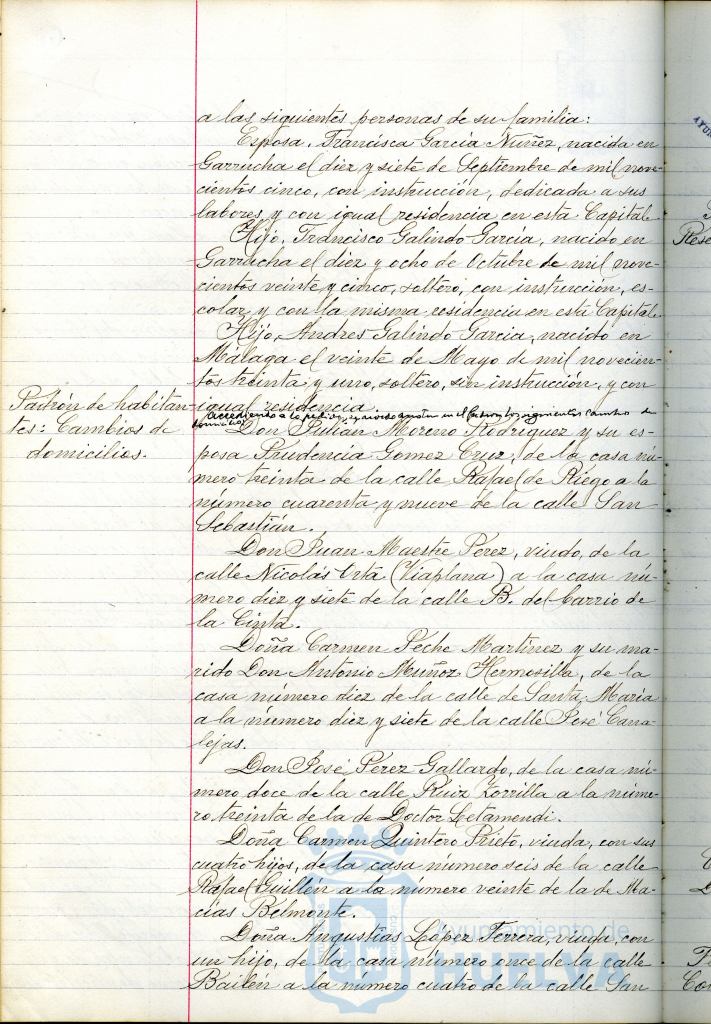 a las siguientes personas de su familia:
Esposa, Francisca García Núñez, nacida en
Garrucha el diez y siete de Septiembre de mil nove-
cientos cinco, con instrucción, dedicada a sus
labores, y con igual residencia en esta Capital.
Hijo, Francisco Galindo García, nacido en
Garrucha el diez y ocho de Octubre de mil nove-
cientos veinte y cinco, soltero, con instrucción, es-
colar, y con la misma residencia en esta Capital.
Hijo, Andres Galindo Garcia, nacido en
Málaga el veinte de Mayo de mil novecien-
tos treinta y uno, soltero, sin instrucción, y con
igual residencia.
Padrón de habitan-
tes: Cambios de
domicilios.
Accediendo a lo pedido, se acordó anotar en el Padrón los siguientes cambios de
domicilios
Don Julián Moreno Rodríguez y su es-
posa Prudencia Gomez Cruz, de la casa nú-
mero treinta de la calle Rafael de Riego a la
número cuarenta y nueve de la calle San
Sebastián.
Don Juan Maestre Pérez, viudo, de la
calle Nicolás Orta (Viaplana) a la casa nú-
mero diez y siete de la calle B. del Carrio de
la Cinta.
Doña Carmen Peche Martínez y su ma-
rido Don Antonio Muñoz Hermosilla, de la
casa número diez de la calle de Santa Maria
a la número diez y siete de la calle José Cana-
lejas.
Don José Pérez Gallardo, de la casa nú-
mero doce de la calle Ruiz Zorrilla a la núme-
ro treinta de la de Doctor Letamendi.
Doña Carmen Quintero Prieto, viuda, con sus
cuatro hijos, de la casa número seis de la calle
Rafael Guillén a la numero veinte de la de Ma-
cías Belmonte.
Doña Angustias López Ferrera, viuda, con
un hijo, de la casa número once de la calle
Bailén a la número cuatro de la calle San
Ayuntamiento de
HUELVA